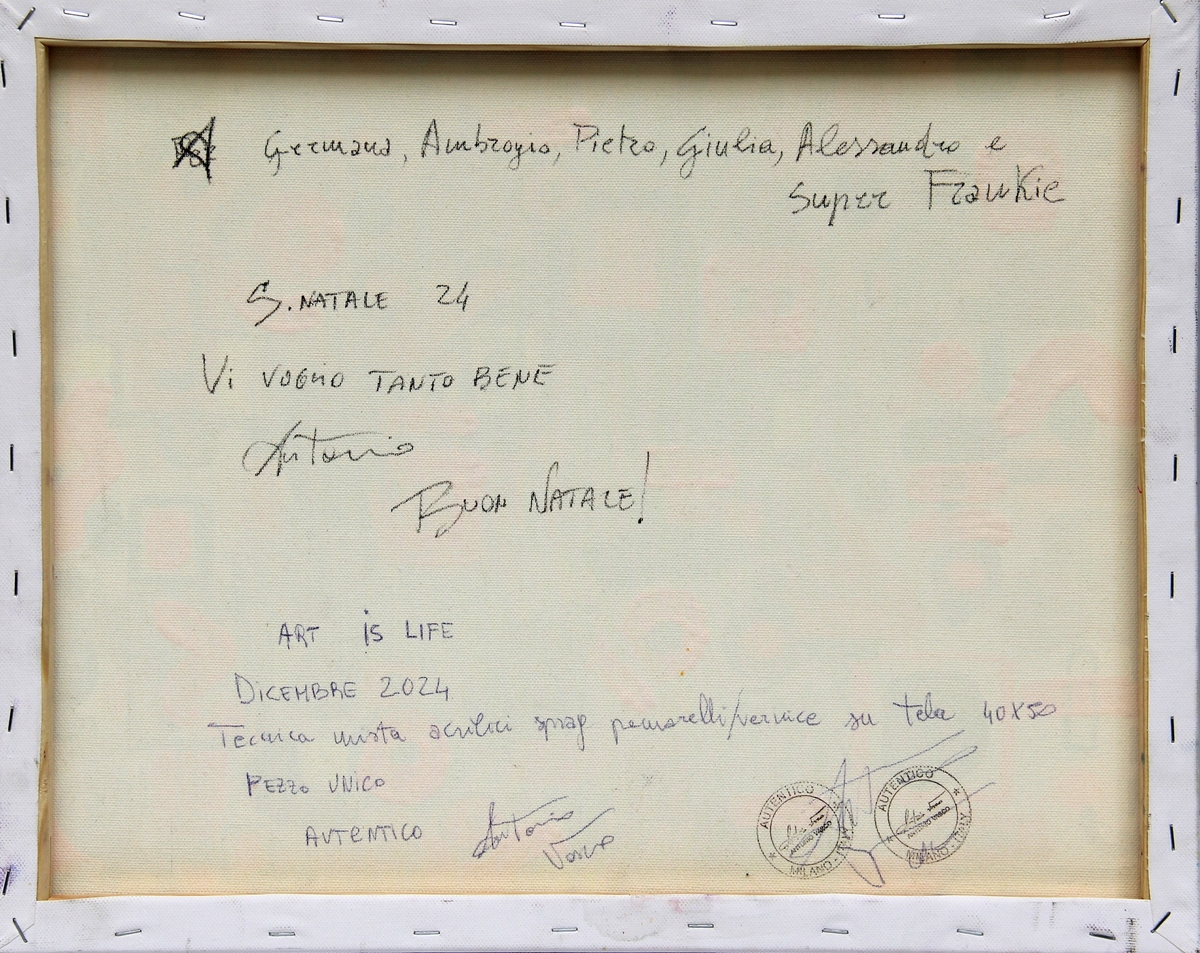 Germana, Ambrogio, Pietro, Giulia, Alessandro e
Super Frankie
S. NATALE 24
Vi VOGLIO TANTO BENE
Antonio
BUON NATALE!
ART iS LIFE
DICEMBRE 2024
Tecnica mista acrilici spray pennarelli/vernice su tela 40X50
PEZZO UNICO
AUTENTICO Antonio Vasco
AUTENTICO ANTONIO VASCO MILANO - ITALY
AUTENTICO ANTONIO VASCO MILANO - ITALY